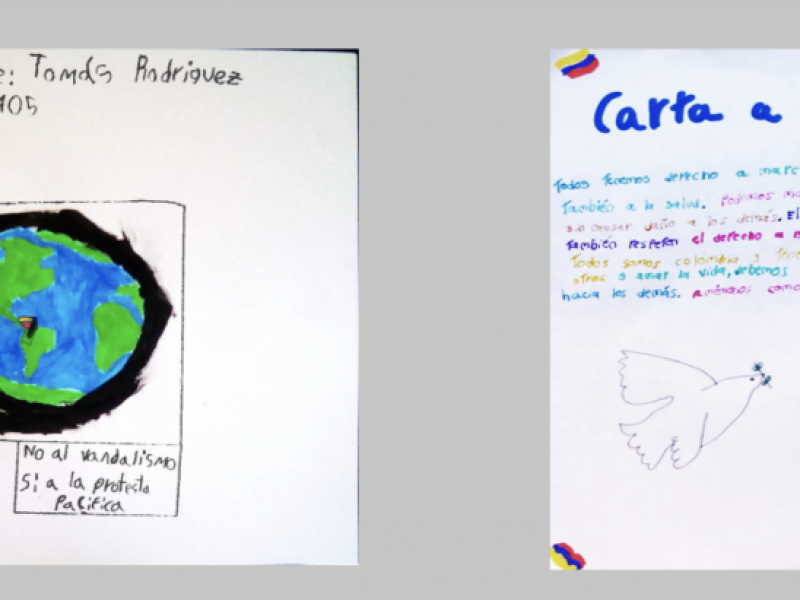 e: Tomás Rodriguez
105
No al vandalismo
Si a la protesta
Pacifica
Carta a
Todos Tenemos derecho a marc
También a la salud. Podemos ma
sin causar daño a los demás. El
también respeten el derecho a
Todos somos colombia y Tene
otros y amar la vida, debemos
hacia los demás. amémonos como